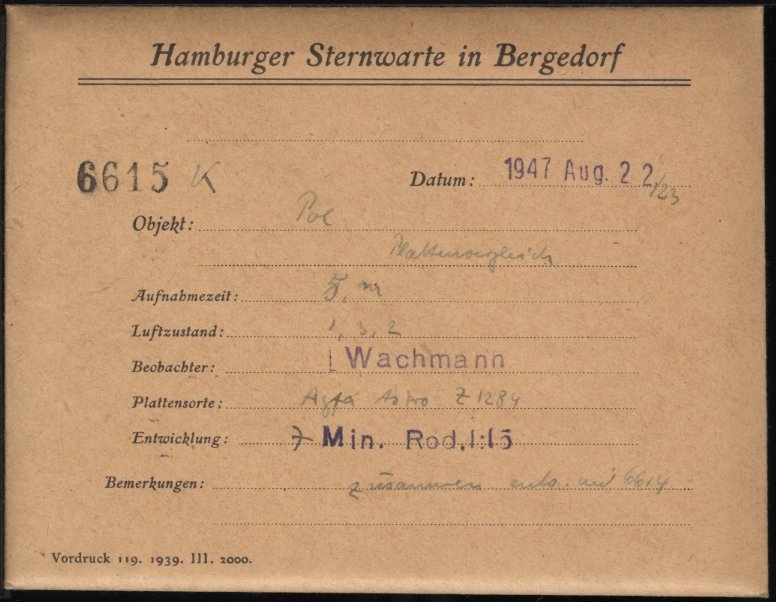 Hamburger Sternwarte in Bergedorf
6615 K Datum: 1947 Aug. 22/23
Objekt: Pol
Plattenvergleich
Aufnahmezeit: 5 m
Luftzustand: 1, 3, 2
Beobachter: Wachmann
Plattensorte: Agfa Astro Z 1284
Entwicklung: 7 Min. Rod. 1:15
Bemerkungen: zusammen entw. mit 6614
Vordruck 119. 1939. III. 2000.